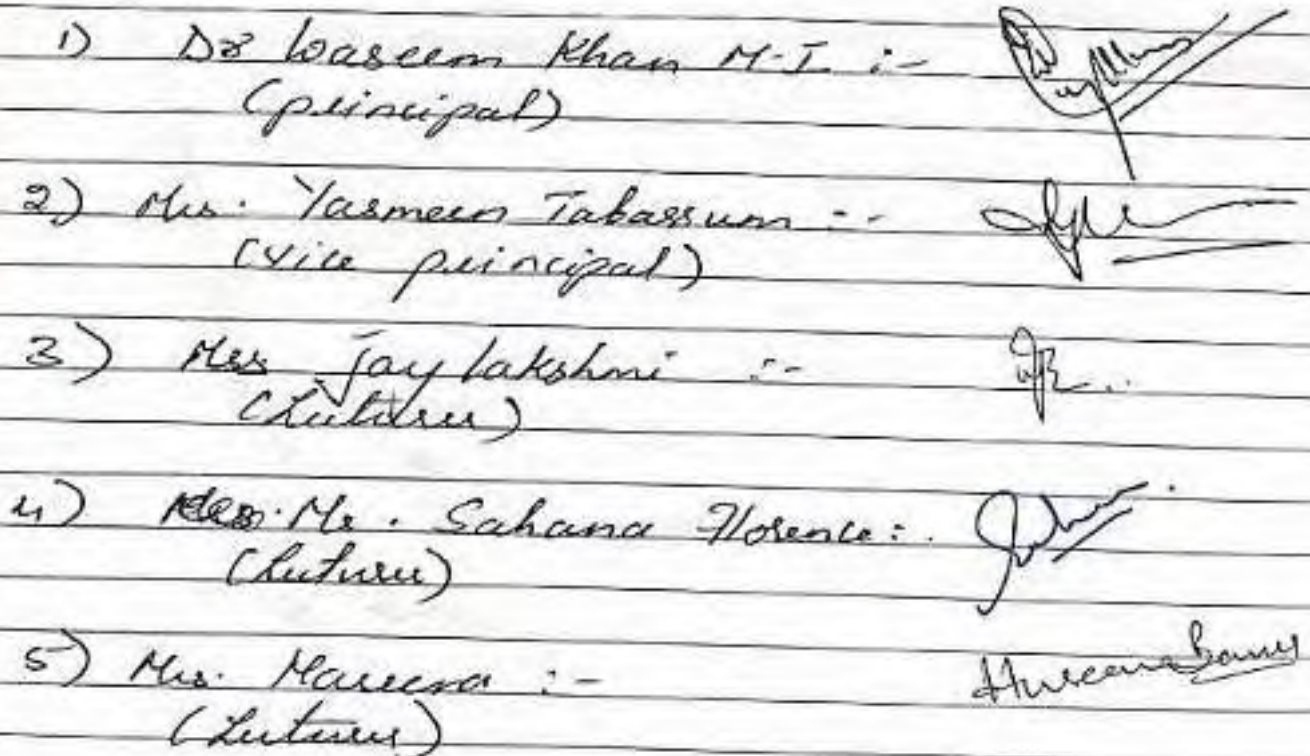 1) Dr Waseem Khan M.I :-
(principal)
2) Mrs. Yasmeen Tabassum :-
(Vice principal)
3) Mrs Jaylakshmi :-
(Lecturer)
4) Ms. Sahana Florence :
(Lecturer)
5) Mrs. :-
(Lecturer)